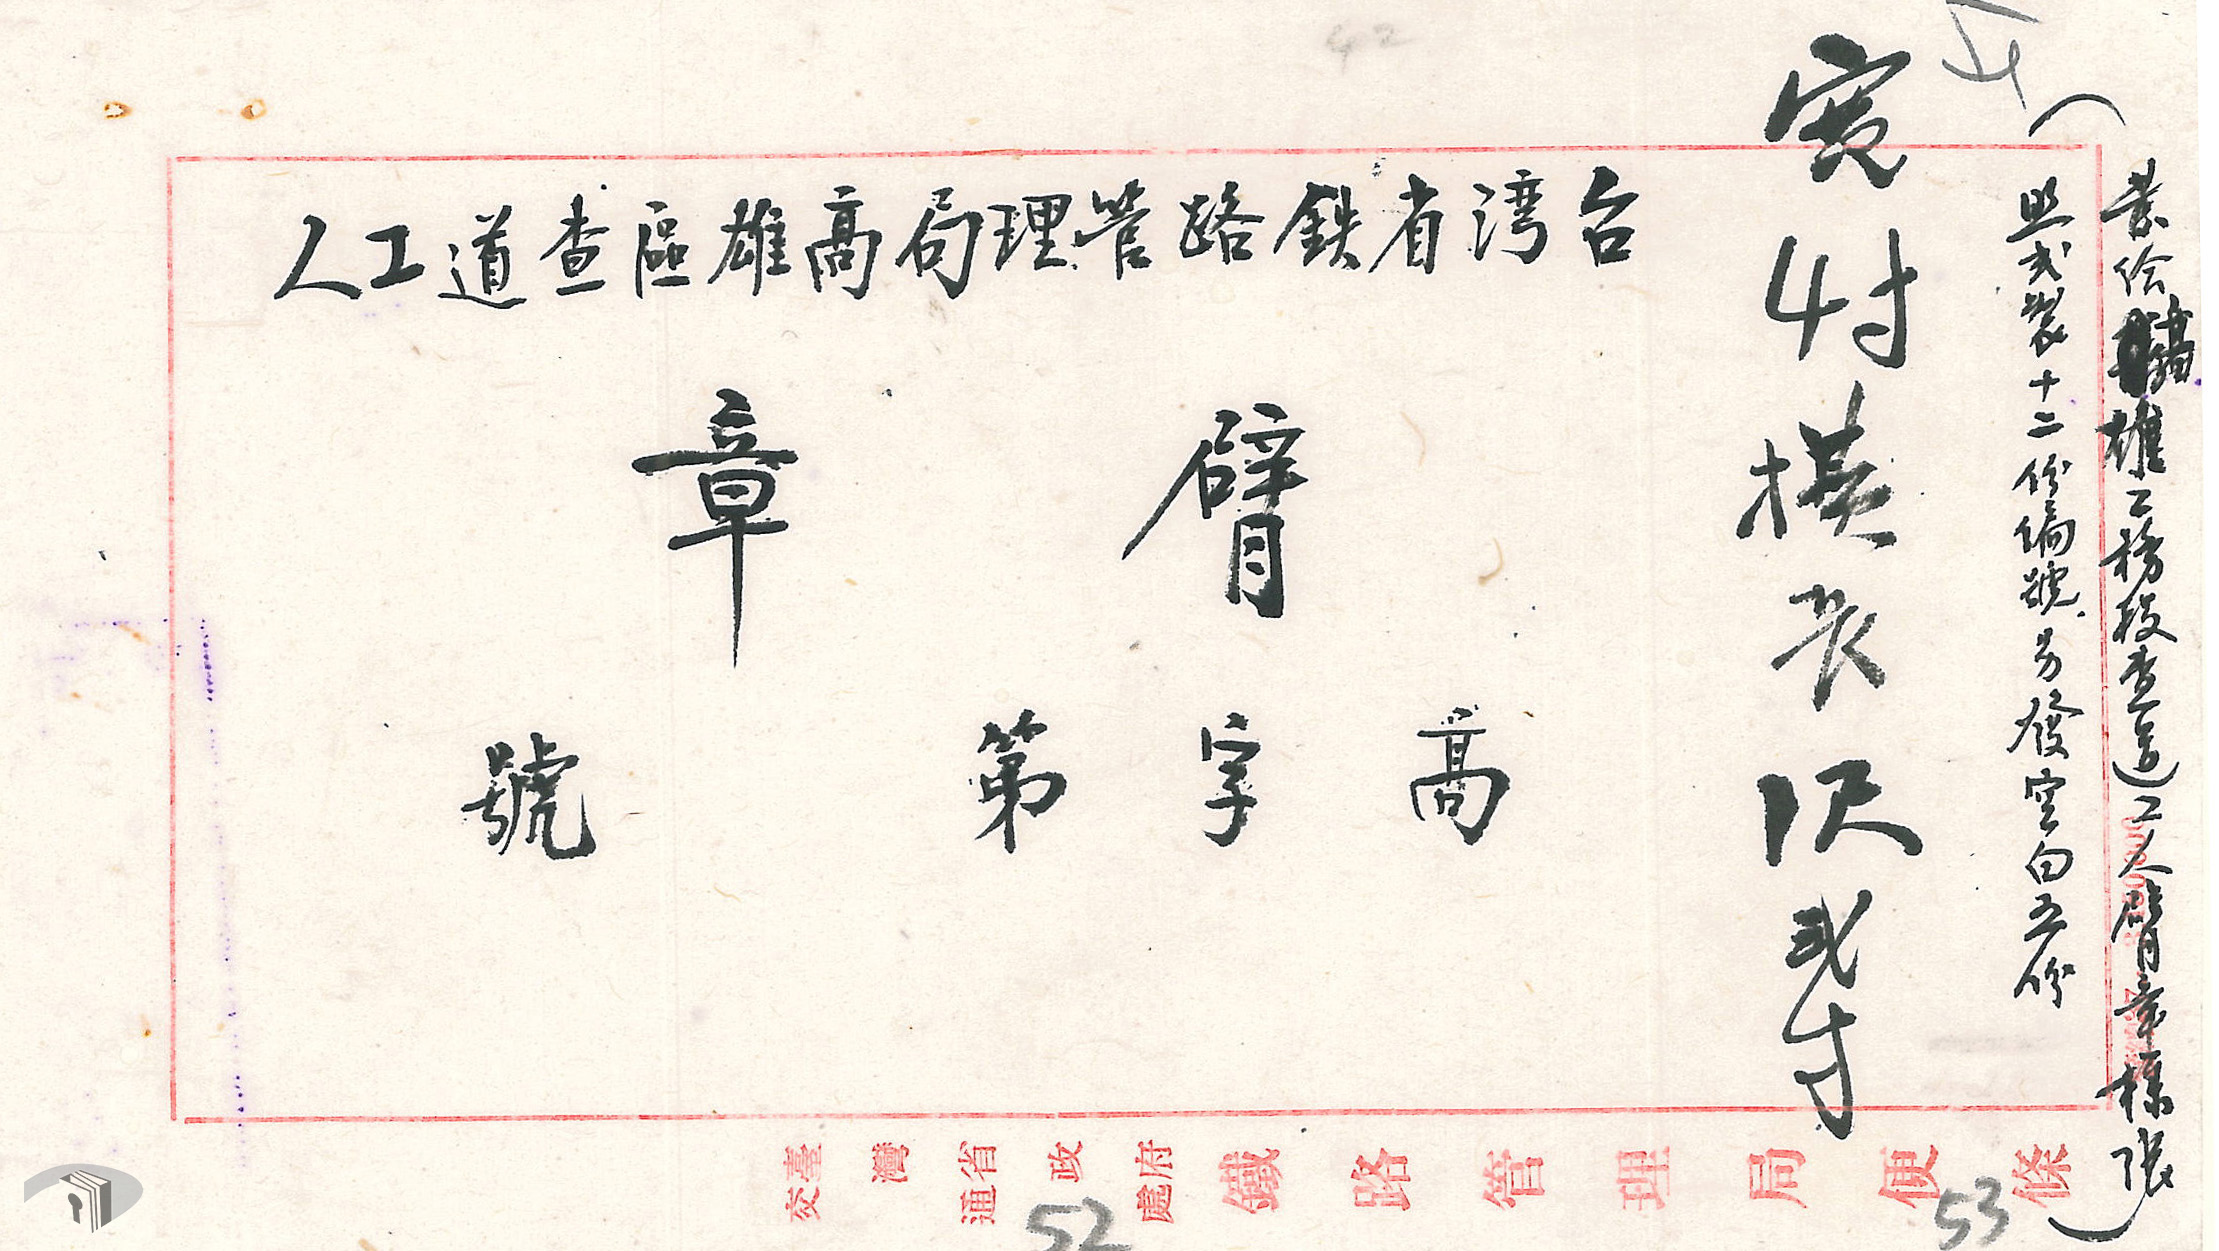 業給高雄工務段查道工人臂章樣張
照式製十二份編號另發空白五份
寬4寸橫長1尺弍寸
台湾省鉄路管理局高雄區查道工人
臂章
高字第號
臺灣省政府交通處鐵路管理局便條
42
52
53